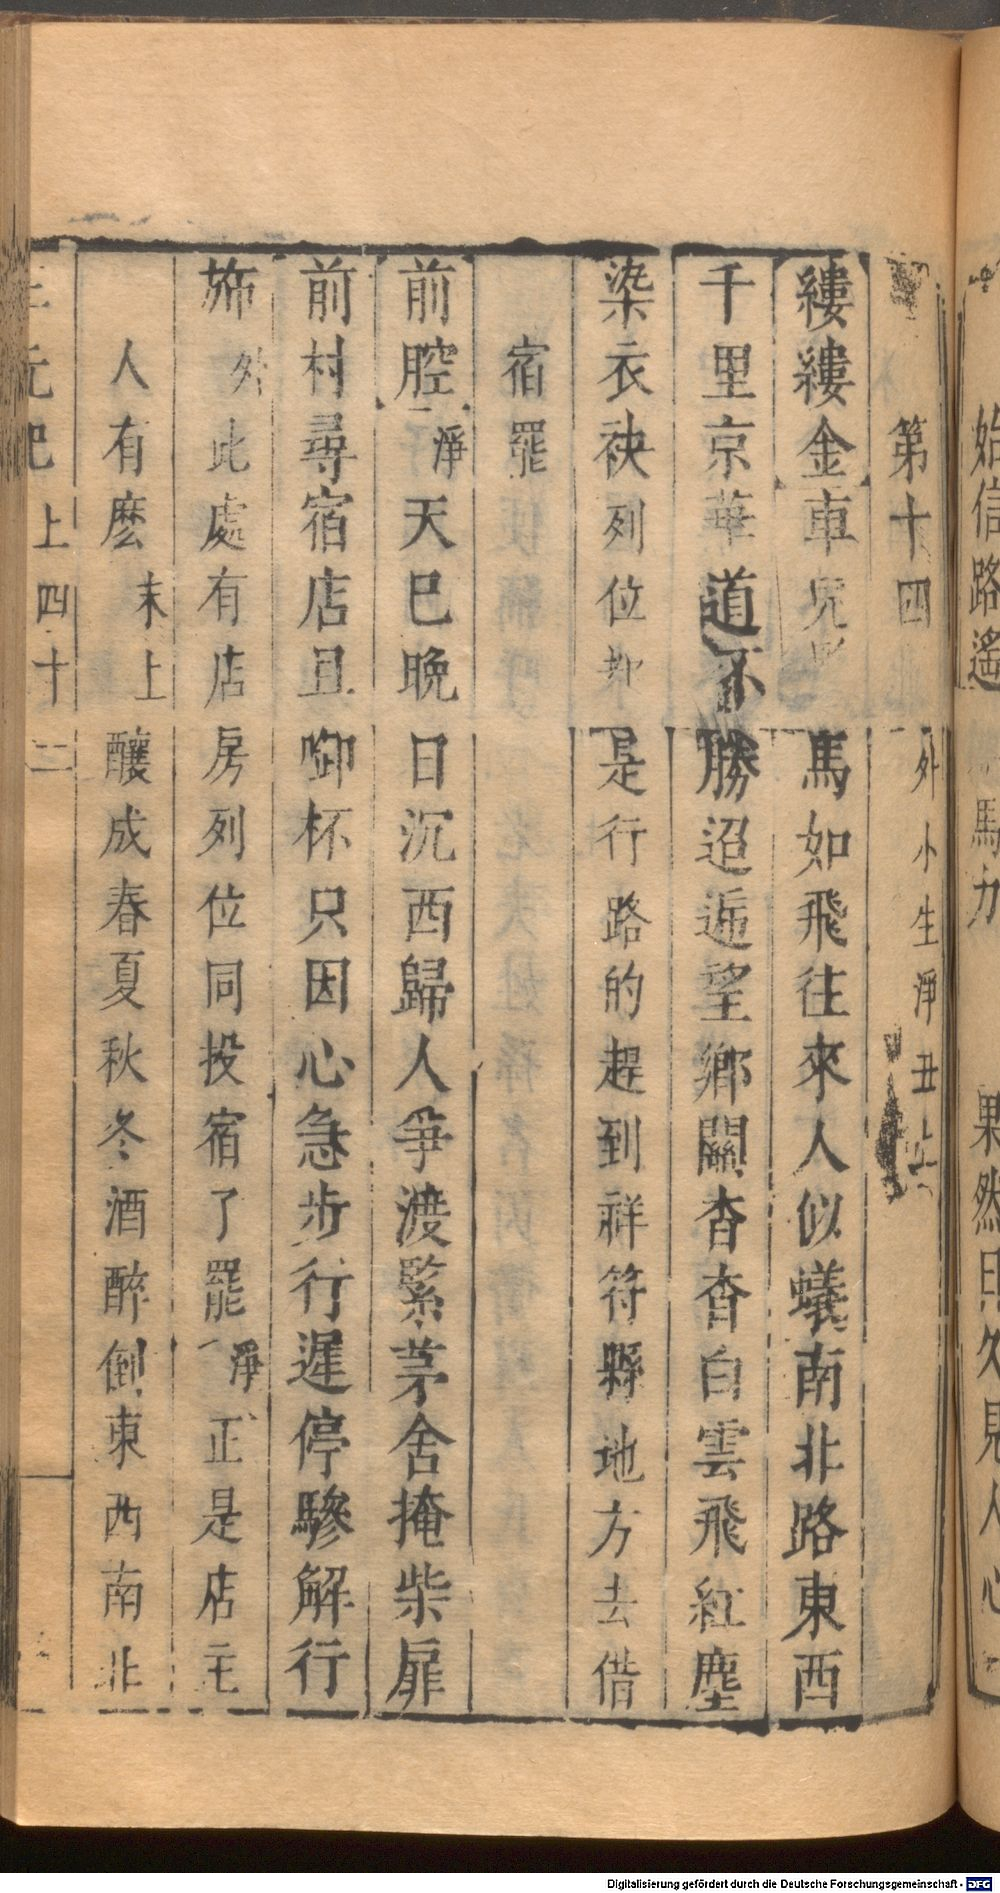 始信路遙 馬力 果然日久見人心
第十四 外小生淨丑上
縷縷金車 馬如飛往來人似蟻南北路東西
千里京華道不勝迢遞望鄉關杳杳白雲飛紅塵
染衣袂列位都是行路的趕到祥符縣地方去借
宿罷
前腔淨天巳晚日沉西歸人爭渡緊茅舍掩柴扉
前村尋宿店且啣杯只因心急步行遲停驂解行
斾外此處有店房列位同投宿了罷淨正是店主
人有麽末上釀成春夏秋冬酒醉倒東西南北
三元記 上 四十二
Digitalisierung gefördert durch die Deutsche Forschungsgemeinschaft - DFG